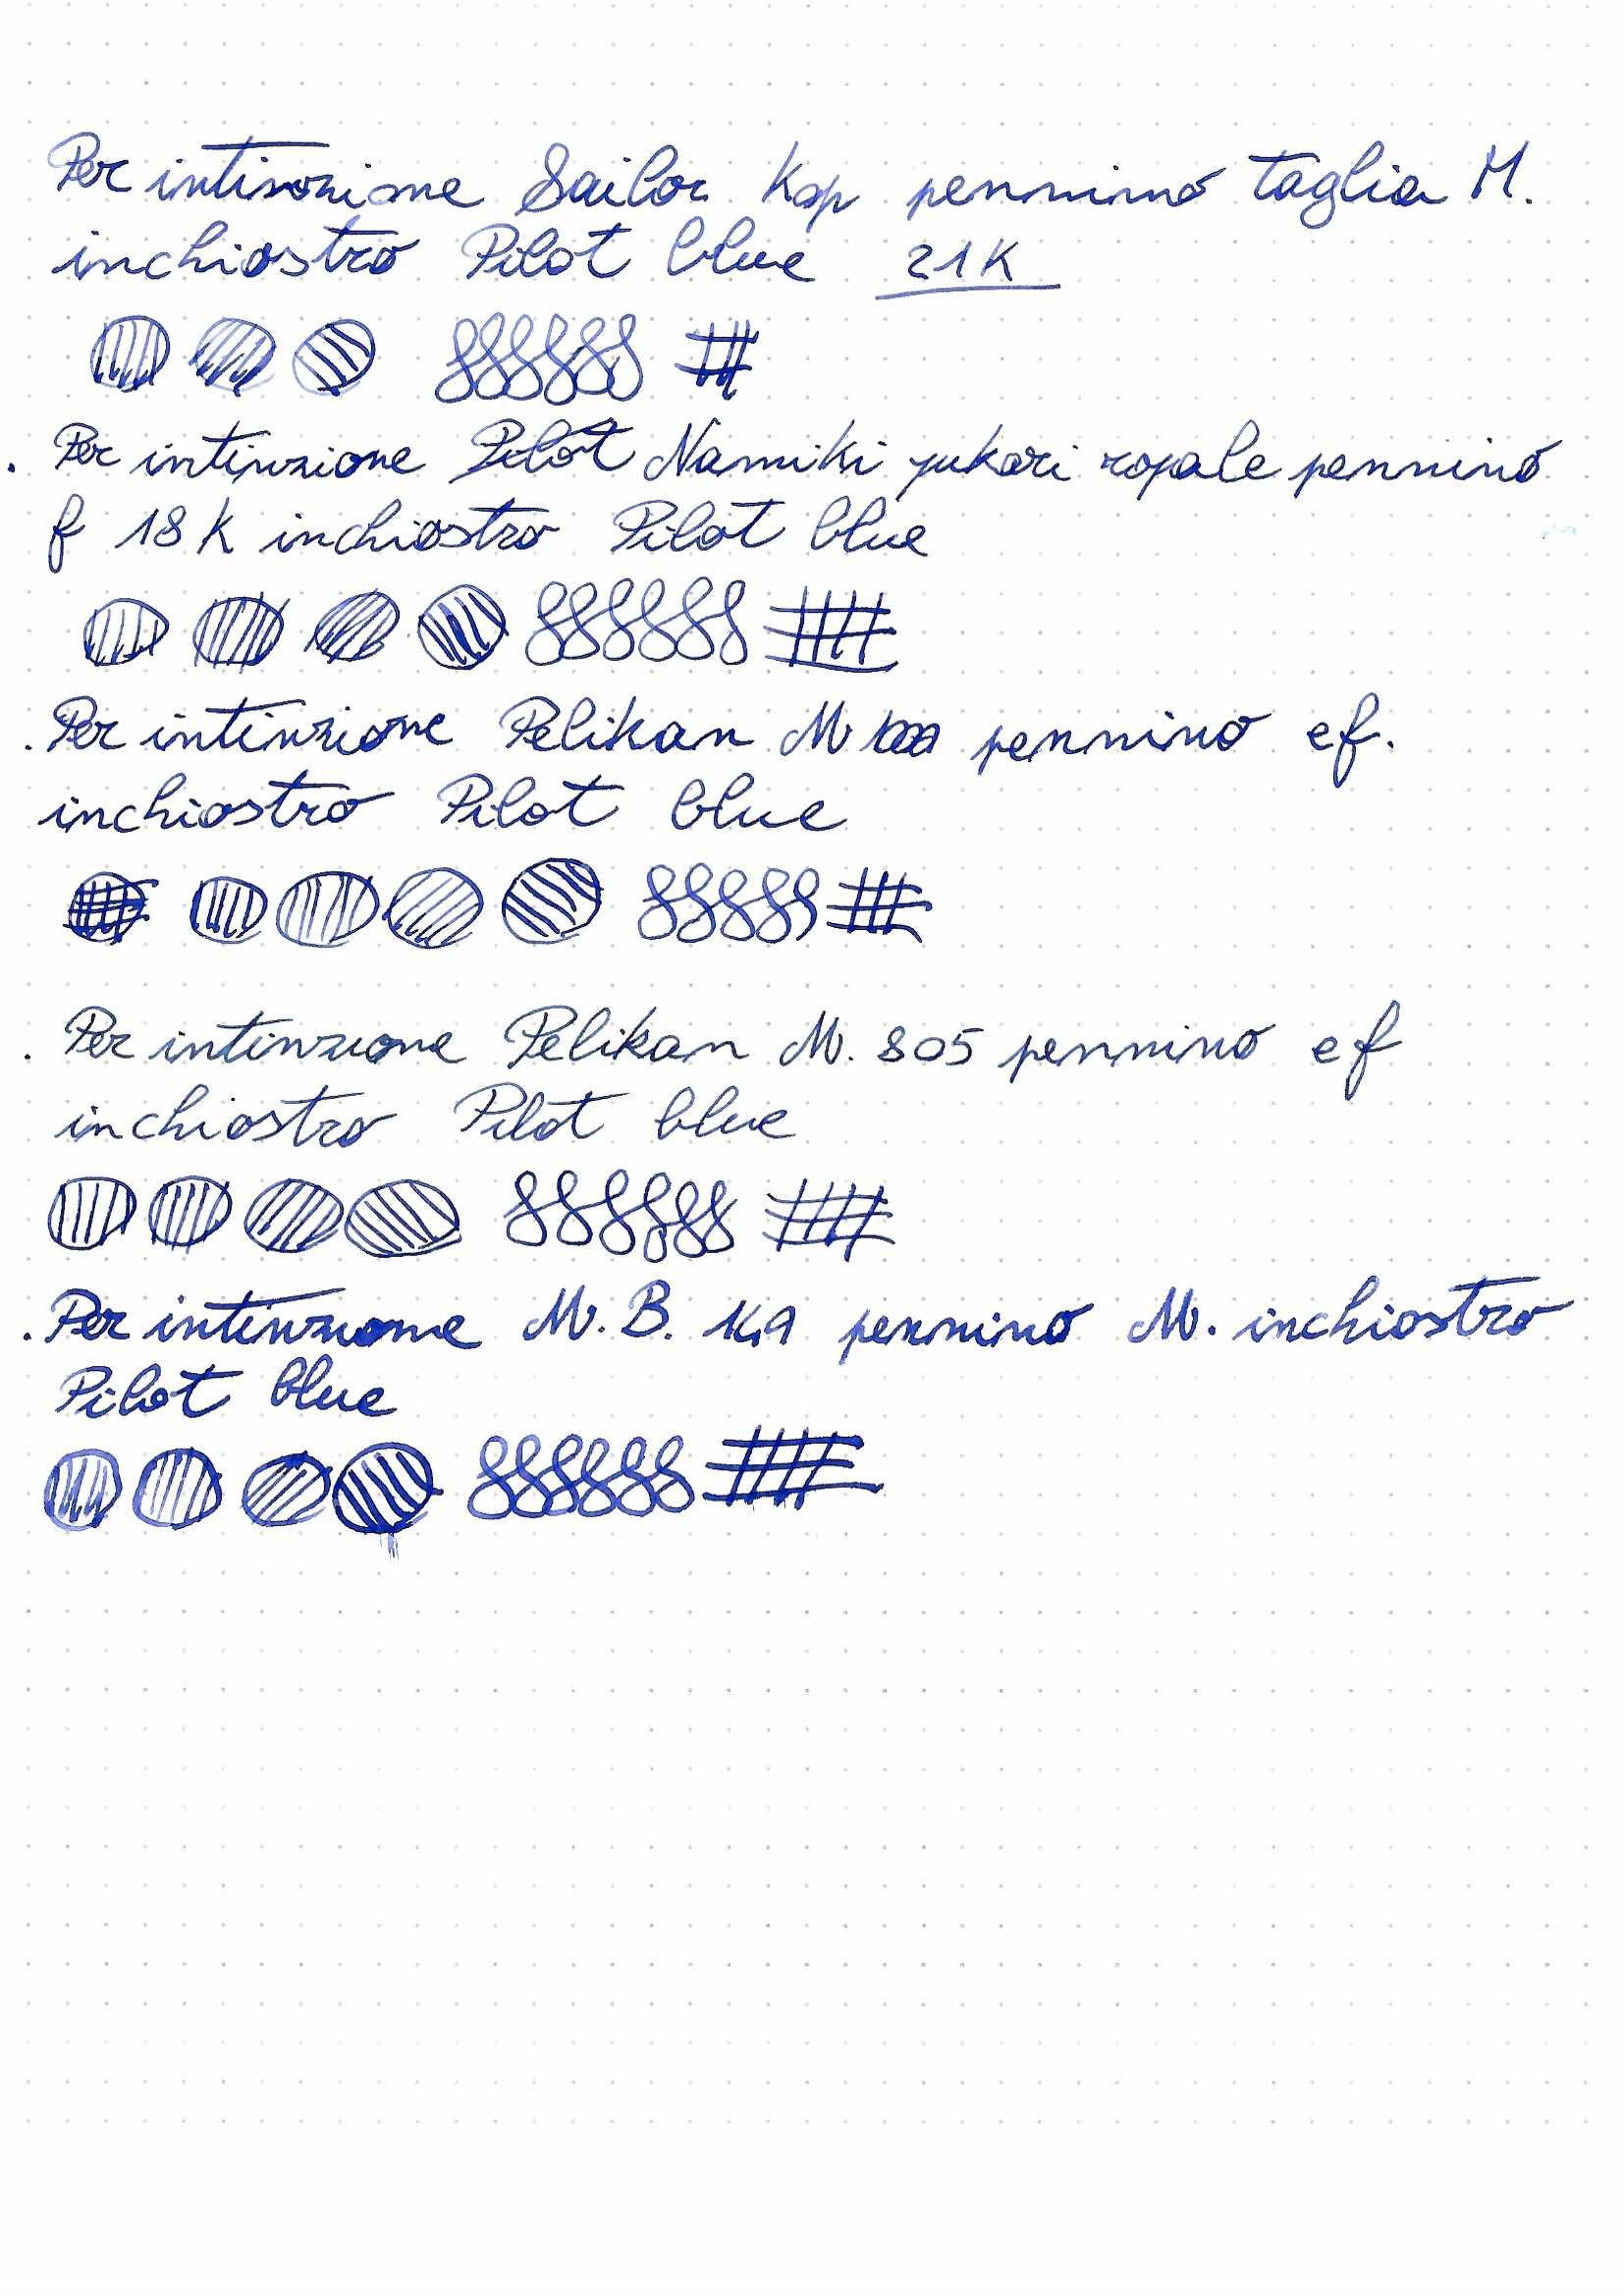 Per intinzione Sailor Kop pennino taglia M.
inchiostro Pilot blue 21K
. Per intinzione Pilot Namiki yukari royale pennino
f 18K inchiostro Pilot blue
. Per intinzione Pelikan M 1000 pennino ef.
inchiostro Pilot blue
. Per intinzione Pelikan M. 805 pennino ef
inchiostro Pilot blue
. Per intinzione M. B. 149 pennino M. inchiostro
Pilot blue